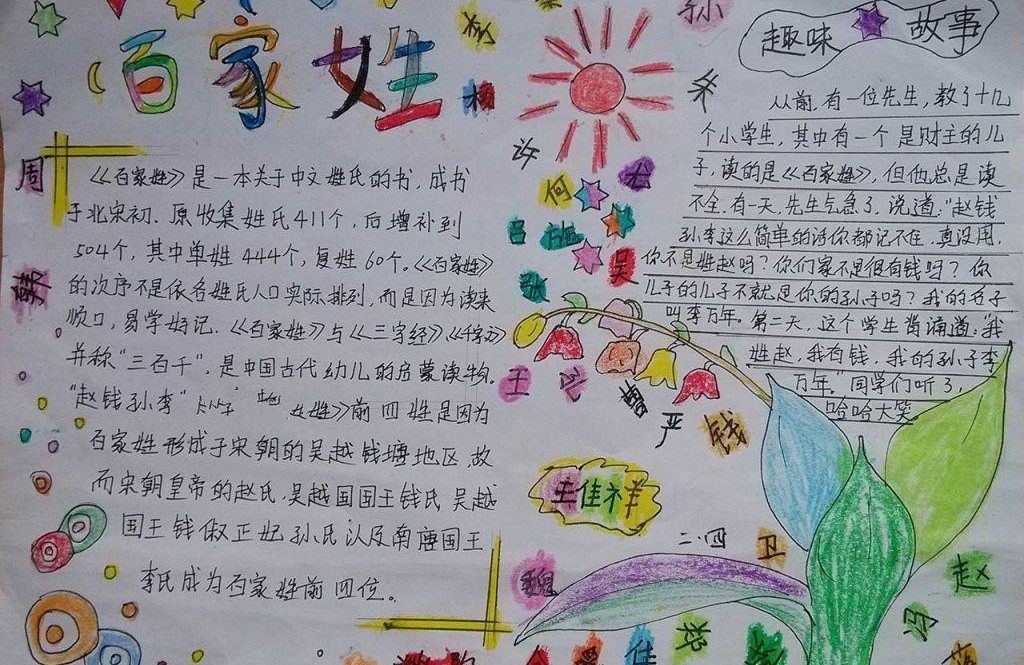 百家姓
《百家姓》是一本关于中文姓氏的书，成书
于北宋初．原收集姓氏411个，后增补到
504个，其中单姓444个，复姓60个。《百家姓》
的次序不是依各姓氏人口实际排列，而是因为读来
顺口，易学好记．《百家姓》与《三字经》《千字文》
并称“三百千”，是中国古代幼儿的启蒙读物，
“赵钱孙李” 《姓》前四姓是因为
百家姓形成于宋朝的吴越钱塘地区，故
而宋朝皇帝的赵氏、吴越国国王钱氏 吴越
国王钱俶正妃孙氏以及南唐国王
李氏成为百家姓前四位。
趣味故事
从前，有一位先生，教了十几
个小学生，其中有一个是财主的儿
子，读的是《百家姓》，但他总是读
不全．有一天，先生气急了，说道：“赵钱
孙李这么简单的话你都记不住，真没用，
你不是姓赵吗？你们家不是很有钱吗？你
儿子的儿子不就是你的孙子吗？我的名字
叫李万年。第二天，这个学生背诵道：“我
姓赵，我有钱，我的孙子李
万年。”同学们听了，
哈哈大笑
周
韩
杨
孙
朱
许
何
尤
吕
施
张
吴
王
曹
严
钱
王佳祥
二．四
卫
魏
赵
冯
佳